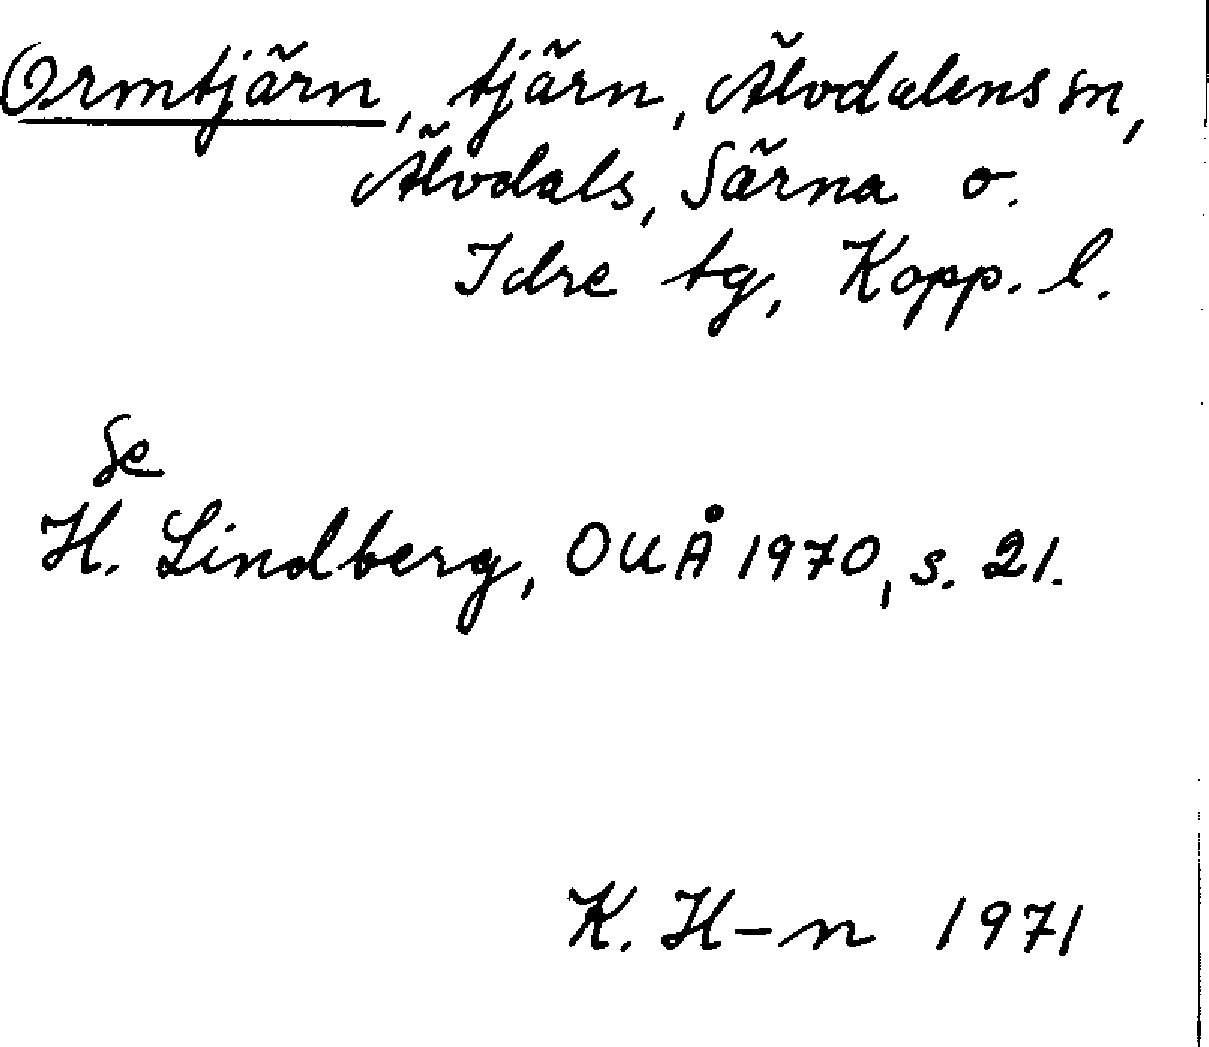 Ormtjärn, tjärn, Älvdalens sn,
Älvdals, Särna o.
Idre tg, Kopp. l.
Se
H. Lindberg, OUÅ 1970, s. 21.
K. H-n 1971